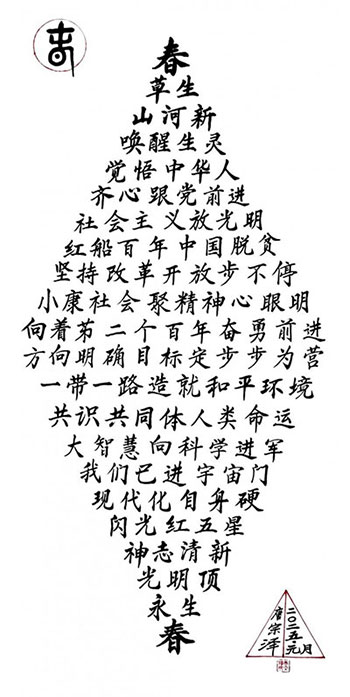 春
草生
山河新
唤醒生灵
觉悟中华人
齐心跟党前进
社会主义放光明
红船百年中国脱贫
坚持改革开放步不停
小康社会聚精神心眼明
向着第二个百年奋勇前进
方向明确目标定步步为营
一带一路造就和平环境
共识共同体人类命运
大智慧向科学进军
我们已进宇宙门
现代化自身硬
闪光红五星
神志清新
光明顶
永生
春
二〇二五.元月
唐宗泽